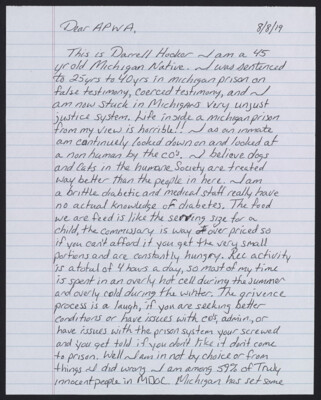 Dear APWA,
8/8/19
This is Darrell Hooker I am a 45
yr old Michigan Native. I was sentenced
to 25yrs to 40yrs in michigan prison on
false testimony, coerced testimony, and I
am now stuck in Michigans very unjust
justice system. Life inside a michigan prison
from my view is horrible!! I as an inmate
am continuely looked down on and looked at
a non human by the co's. I believe dogs
and Cats in the humane Society are treated
way better than the people in here. I am
a brittle diabetic and medical staff really have
no actual knowledge of diabetes. The food
we are feed is like the serving size for a
child, the commissary is way over priced so
if you cant afford it you get the very small
portons and are constantly hungry. Rec activity
is a total of 4 hours a day, so most of my time
is spent in an overly hot cell during the summer
and overly cold during the winter. The grivence
process is a laugh, if you are seeking better
conditions or have issues with co's, admin, or
have issues with the prison system your screwed
and you get told if you dont like it dont come
to prison. Well I am in not by choice or from
things I did wrong I am among 59% of Truly
innocent people in MDOC. Michigan has set some